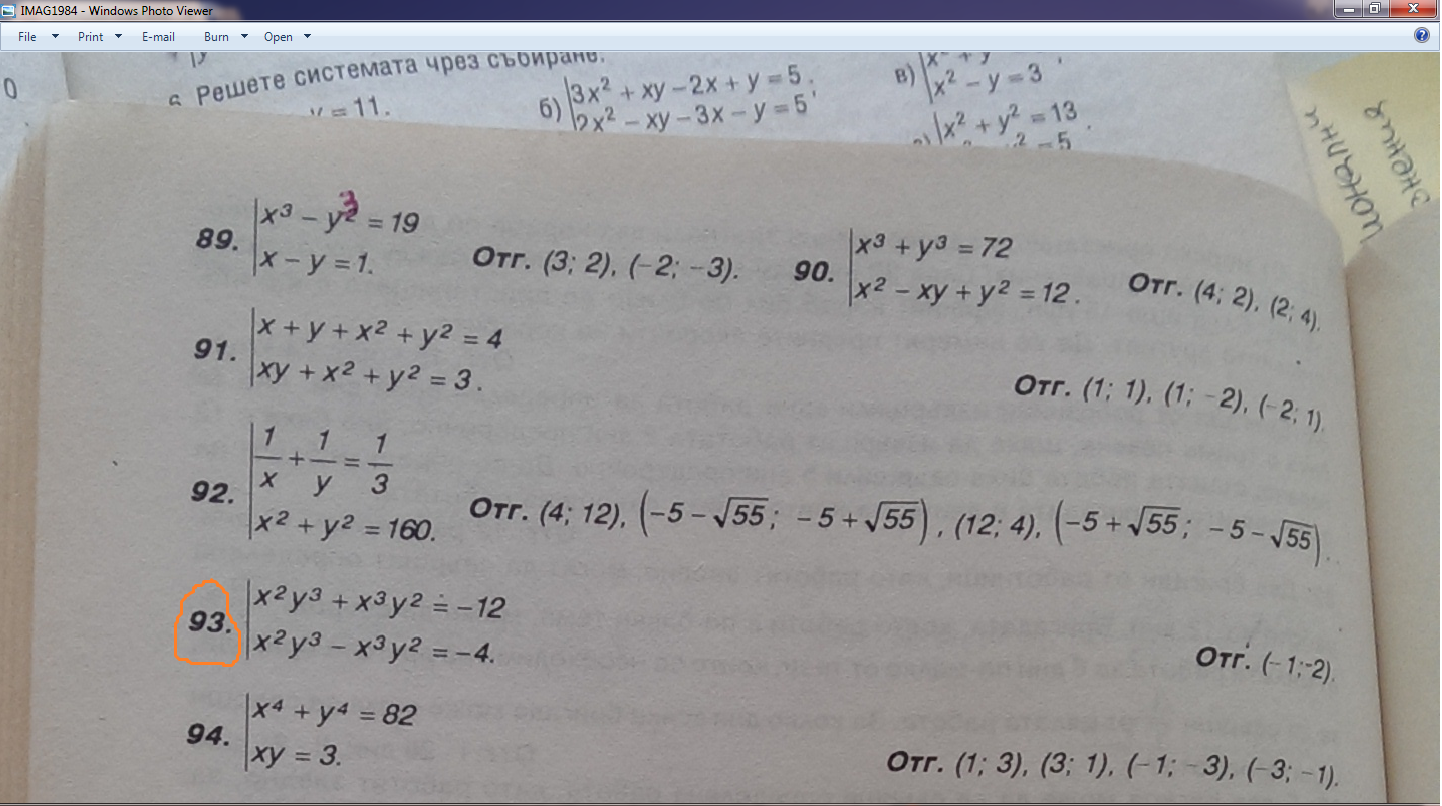 IMAG1984 - Windows Photo Viewer
File Print E-mail Burn Open
0
6. Решете системата чрез събиране.
y = 11.
б) |3x² + xy – 2x + y = 5
|2x² – xy – 3x – y = 5 ;
в) |x² + y
|x² – y = 3 ;
|x² + y² = 13
² = 5
89. |x³ – y² 3 = 19
|x – y = 1.
Отг. (3; 2), (–2; –3).
90. |x³ + y³ = 72
|x² – xy + y² = 12.
Отг. (4; 2), (2; 4).
91. |x + y + x² + y² = 4
|xy + x² + y² = 3.
Отг. (1; 1), (1; –2), (–2; 1).
92. |1/x + 1/y = 1/3
|x² + y² = 160.
Отг. (4; 12), (–5 – √55; –5 + √55), (12; 4), (–5 + √55; –5 – √55).
93. |x²y³ + x³y² = –12
|x²y³ – x³y² = –4.
Отг. (–1; –2).
94. |x⁴ + y⁴ = 82
|xy = 3.
Отг. (1; 3), (3; 1), (–1; –3), (–3; –1).